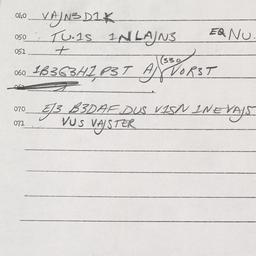 040 VAJNSD1K
050 TU.1S 1NLAJNS EQ NU.
051 +
060 1B3G3HI, P3T AJ VOR3T
(330
070 EJ3 B3DAF DUS V1SN 1NEVAJS
071 VUS VAJSTER